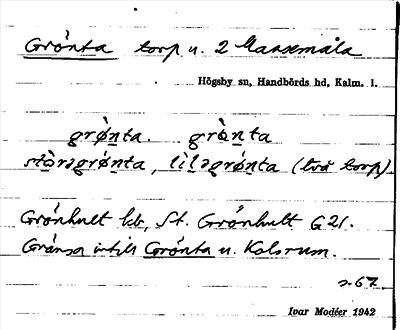 Grönta torp u. 2 Maasemåla
Högsby sn, Handbörds hd, Kalm. l.
grø̀nta. grànta
stòrəgrǿnta, lìləgrǿnta (två torp)
Grönhult hb, St. Grönhult G 21.
Gränsa intill Grönta u. Kolsrum.
s. 67
Ivar Modéer 1942